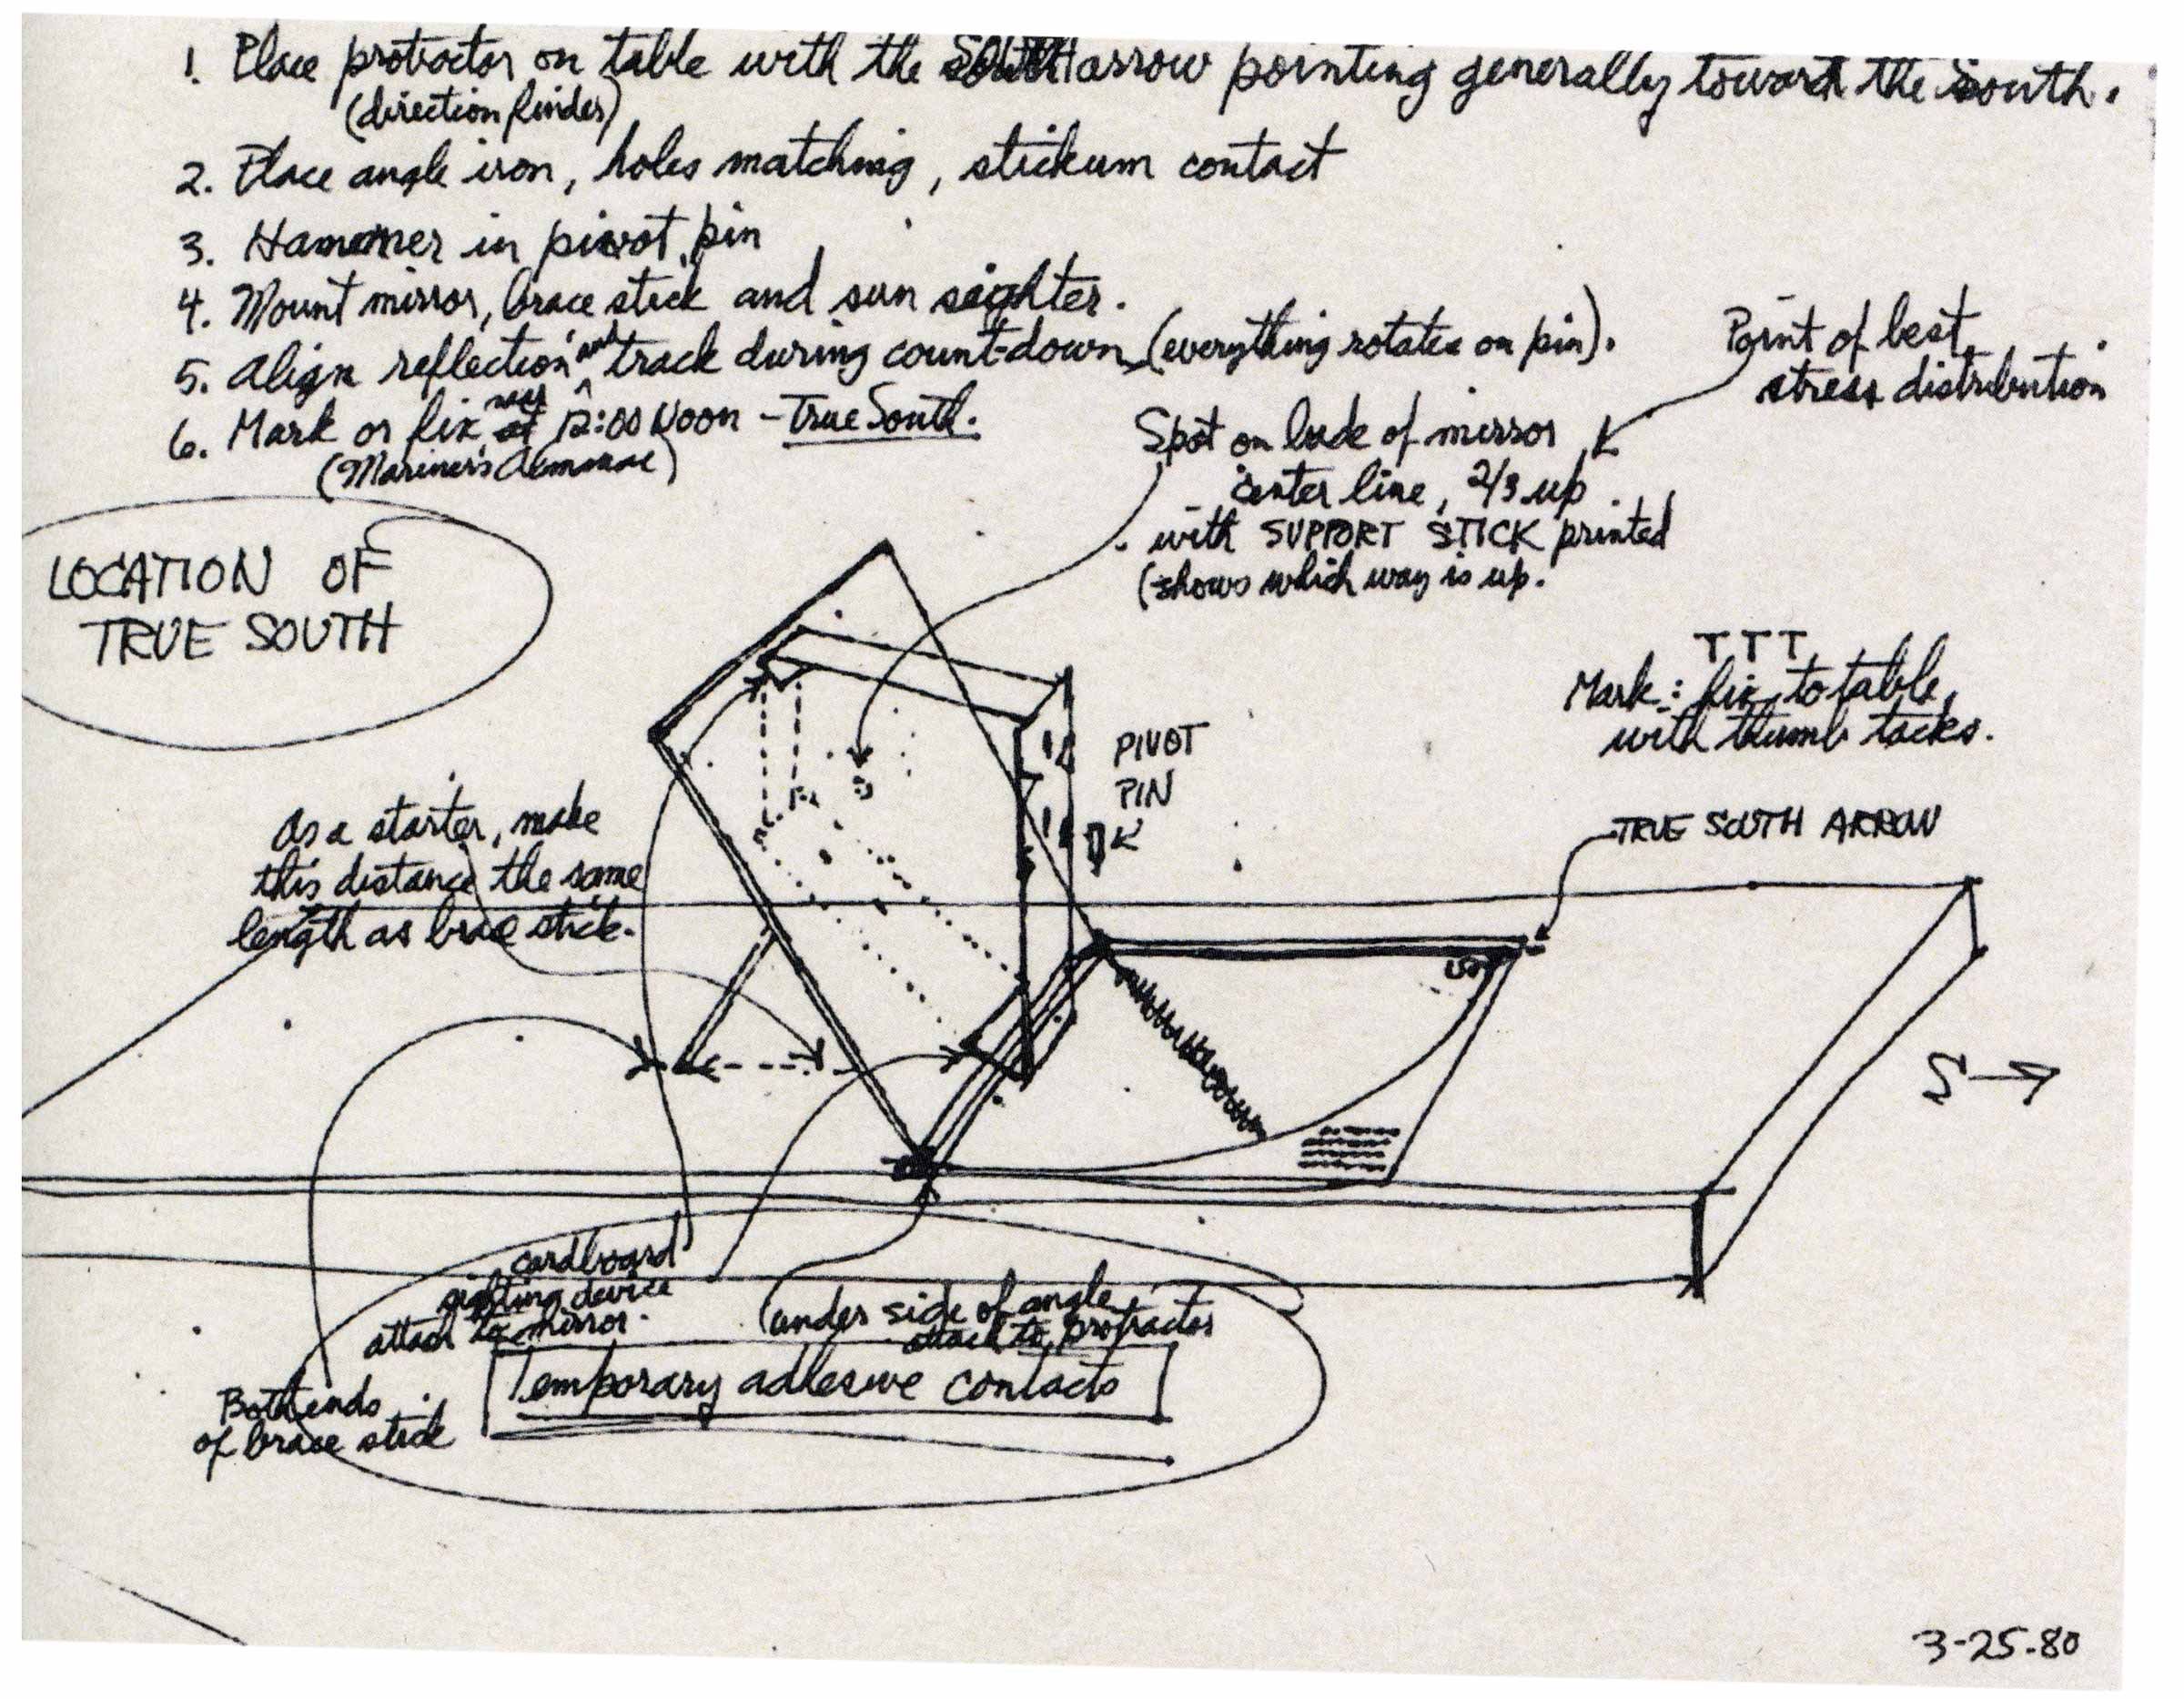 1. Place protractor on table with the South arrow pointing generally toward the South.
(direction finder)
2. Place angle iron, holes matching, stickum contact
3. Hammer in pivot pin
4. Mount mirror, brace stick and sun sighter.
5. Align reflection and track during count-down (everything rotates on pin).
6. Mark or fix at 12:00 Noon - True South.
(Mariner's Almanac)
Point of best
stress distribution
Spot on back of mirror
center line, 2/3 up
with SUPPORT STICK printed
(shows which way is up.
LOCATION OF
TRUE SOUTH
T T T
Mark: fix to table
with thumb tacks.
PIVOT
PIN
TRUE SOUTH ARROW
As a starter, make
this distance the same
length as brace stick.
S
cardboard
sighting device
attach to mirror.
(under side of angle
attach to protractor
Temporary adhesive contacts
Both ends
of brace stick
3-25-80